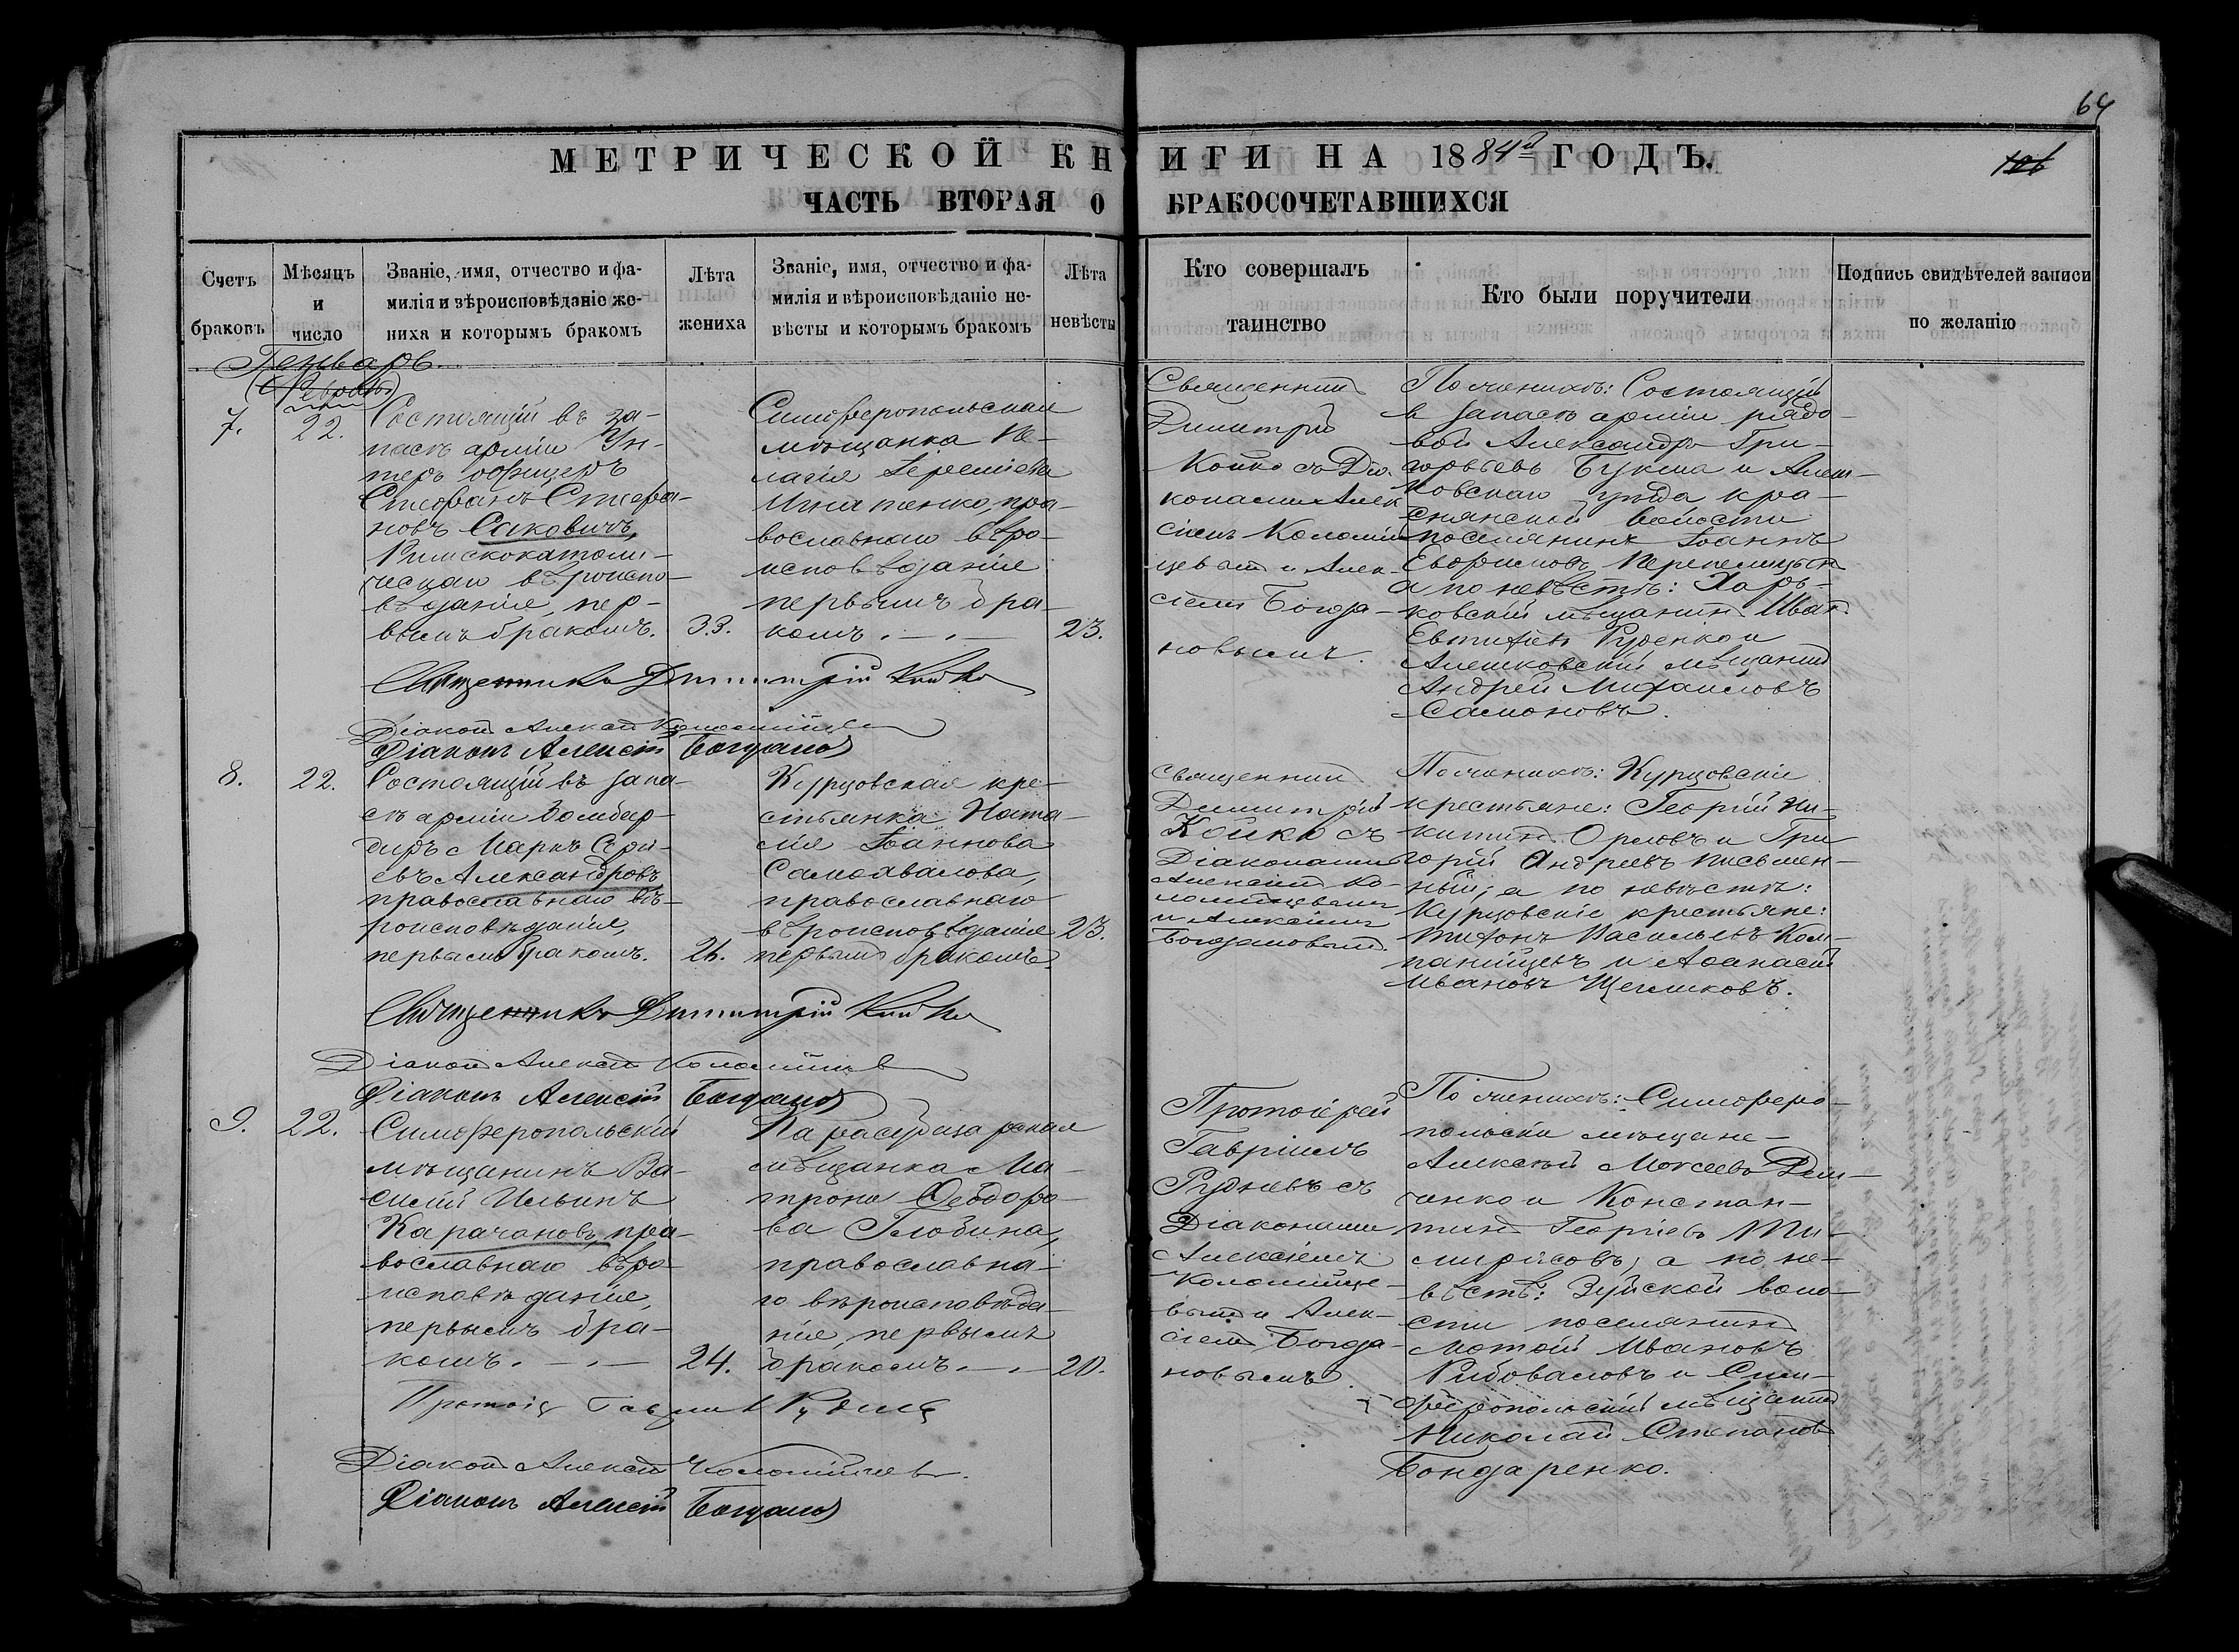 64
МЕТРИЧЕСКОЙ КНИГИ НА 1884й ГОДЪ.
106
ЧАСТЬ ВТОРАЯ О БРАКОСОЧЕТАВШИХСЯ
Счетъ браковъ
Мѣсяцъ и число
Званіе, имя, отчество и фа-
милія и вѣроисповѣданіе же-
ниха и которымъ бракомъ
Лѣта жениха
Званіе, имя, отчество и фа-
милія и вѣроисповѣданіе не-
вѣсты и которымъ бракомъ
Лѣта невѣсты
Кто совершалъ таинство
Кто были поручители
Подпись свидѣтелей записи
по желанію
Генварь
7.
22.
Состоящій въ за-
пасѣ арміи Ун-
теръ офицеръ
Стефанъ Стефа-
новъ Саковичъ,
Римскокатоли-
ческаго вѣроиспо-
вѣданія, пер-
вымъ бракомъ.
33.
Симферопольская
мѣщанка Пе-
лагія Іереміева
Игнатенко, пра-
вославнаго вѣро-
исповѣданія
первымъ бра-
комъ.
23.
Священникъ
Димитрій
Койко съ Діа-
конами Алек-
сіемъ Коломій-
цевымъ и Алек-
сіемъ Богда-
новымъ.
По женихѣ: Состоящій
в запасѣ арміи рядо-
вой Александръ Гри-
горьевъ Букша и Алеш-
ковскаго уѣзда кра-
снянской волости
поселянинъ Іоаннъ
Евфимовъ Перепелицынъ
а по невѣстѣ: Харь-
ковскій мѣщанинъ Иван.
Евтифіевъ Руденко и
Алешковскій мѣщанинъ
Андрей Михаиловъ
Самоновъ.
Священникъ Димитрій Койко
Діаконъ Алексѣй Коломійцевъ
Діаконъ Алексій Богдановъ
8.
22.
Состоящій въ запа-
сѣ арміи бомбар-
диръ Маркъ Сергі-
евъ Александровъ
православнаго вѣ-
роисповѣданія,
первымъ бракомъ.
26.
Курцовская кре-
стьянка Ната-
лія Іоаннова
Самохвалова,
православнаго
вѣроисповѣданія
первымъ бракомъ.
23.
Священникъ
Димитрій
Койко съ
Діаконами
Алексіемъ Ко-
ломійцевымъ
и Алексіемъ
Богдановымъ.
По женихѣ: Курцовскіе
крестьяне: Георгій Ни-
китинъ Орловъ и Гри-
горій Андреевъ Письмен-
ный; а по невѣстѣ:
Курцовскіе крестьяне:
Тихонъ Васильевъ Ком-
панійцевъ и Аѳанасій
Ивановъ Щегликовъ.
Священникъ Димитрій Койко
Діаконъ Алексѣй Коломійцевъ
Діаконъ Алексій Богдановъ
9.
22.
Симферопольскій
мѣщанинъ Ва-
силій Ильинъ
Карачановъ, пра-
вославнаго вѣро-
исповѣданія,
первымъ бра-
комъ.
24.
Карасубазарская
мѣщанка Ма-
трона Ѳеодоро-
ва Глобина,
православна-
го вѣроисповѣда-
нія, первымъ
бракомъ.
20.
Протоіерей
Гавріилъ
Рудневъ съ
Діаконами
Алексіемъ
Коломійце-
вымъ и Алек-
сіемъ Богда-
новымъ.
По женихѣ: Симферо-
польскіе мѣщане
Алексѣй Моисеевъ Дем-
ченко и Констан-
тинъ Георгіевъ
а по не-
вѣстѣ: Зуйской воло-
сти поселянинъ
Ивановъ
Рибоваловъ и Сим-
феропольскій мѣщанинъ
Николай Степановъ
Бондаренко.
Протоіер Гавріилъ Рудневъ
Діаконъ Алексѣй Коломійцевъ.
Діаконъ Алексій Богдановъ